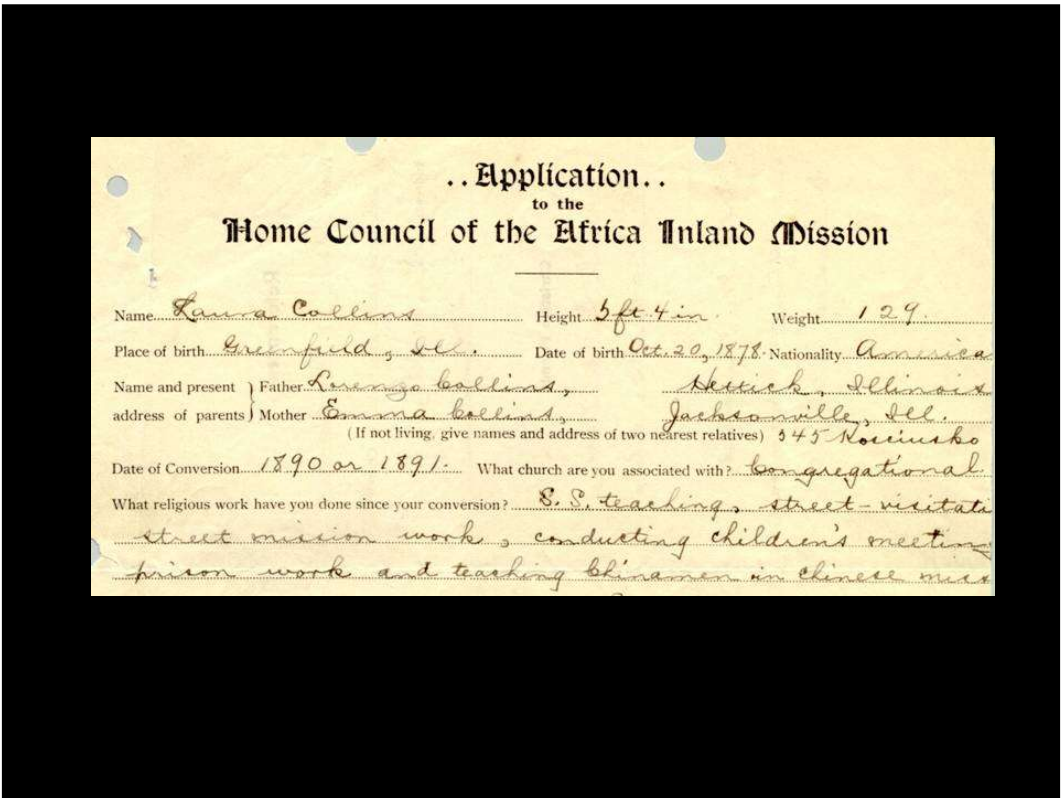 ..Application..
to the
Home Council of the Africa Inland Mission
Name Laura Collins Height 5 ft 4 in. Weight 129.
Place of birth Greenfield, Ill. Date of birth Oct. 20, 1878. Nationality America
Name and present } Father Lorenzo Collins, Hettick, Illinois
address of parents } Mother Emma Collins, Jacksonville, Ill.
(If not living, give names and address of two nearest relatives) 345 Kosciusko
Date of Conversion 1890 or 1891. What church are you associated with? Congregational
What religious work have you done since your conversion? S. S. teaching, street-visitati
street mission work, conducting children's meetin
prison work and teaching Chinamen in chinese miss